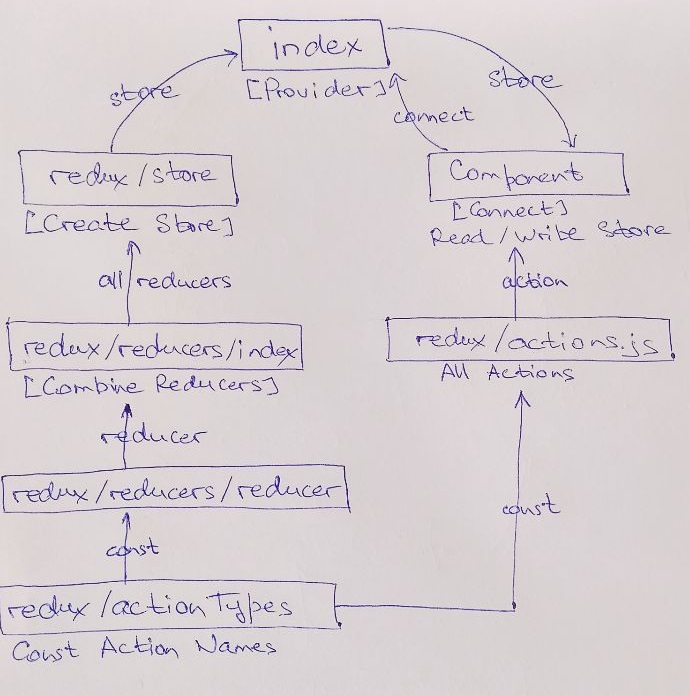 index
[Provider]
store
store
connect
redux/store
[Create Store]
Component
[Connect]
Read/Write Store
all reducers
action
redux/reducers/index
[Combine Reducers]
redux/actions.js
All Actions
reducer
redux/reducers/reducer
const
const
redux/actionTypes
Const Action Names